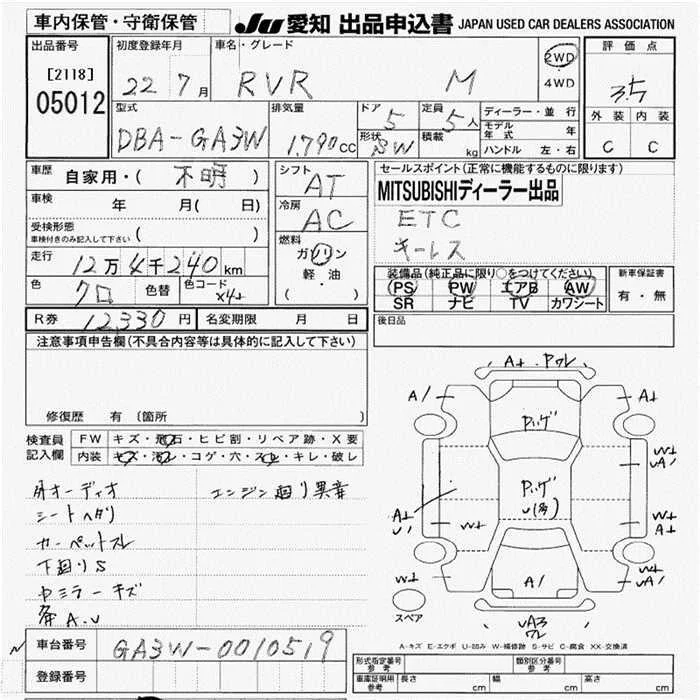 車内保管・守衛保管
JU 愛知 出品申込書 JAPAN USED CAR DEALERS ASSOCIATION
出品番号
[2118]
05012
初度登録年月
22 7月
車名・グレード
RVR M
2WD
・
4WD
評価点
3.5
外装 内装
C C
型式
DBA-GA3W
排気量
1,790cc
ドア
5
形状
SW
定員
5人
積載
kg
ディーラー・並行
モデル年式 年
ハンドル 左・右
車歴
自家用・( 不明 )
車検
年 月( 日)
受検形態
車検付きのみ記入して下さい ( )
走行
12万4千240km
色
クロ
色替
色コード
X42
シフト
AT
冷房
AC
燃料
ガソリン
軽・油
( )
セールスポイント(正常に機能するものに限ります)
MITSUBISHIディーラー出品
ETC
キーレス
装備品(純正品に限り○をつけてください)
PS PW エアB AW
SR ナビ TV カワシート
新車保証書
有・無
R券 12,330円
名変期限 月 日
後日品
注意事項申告欄(不具合内容等は具体的に記入して下さい)
修復歴 有〔箇所
検査員記入欄
FW キズ・飛石・ヒビ割・リペア跡・X要
内装 キズ・汚レ・コゲ・穴・スレ・キレ・破レ
外オーディオ
シートヘタリ
カーペットスレ
下廻りS
ミラーキズ
A.U
エンジン廻り異音
A+ ワレ
A1
A+
W+
UA1
A+
U1
W+
A+
W+
W+
UA1
A1
UA3
ワレ
スペア
A-キズ E-エクボ U-凹み W-補修跡 S-サビ C-腐食 XX-交換済
車台番号 GA3W-0010519
登録番号
形式指定番号
参考
類別区分番号
参考
車庫証明用
参考
長さ cm 幅 cm 高さ cm